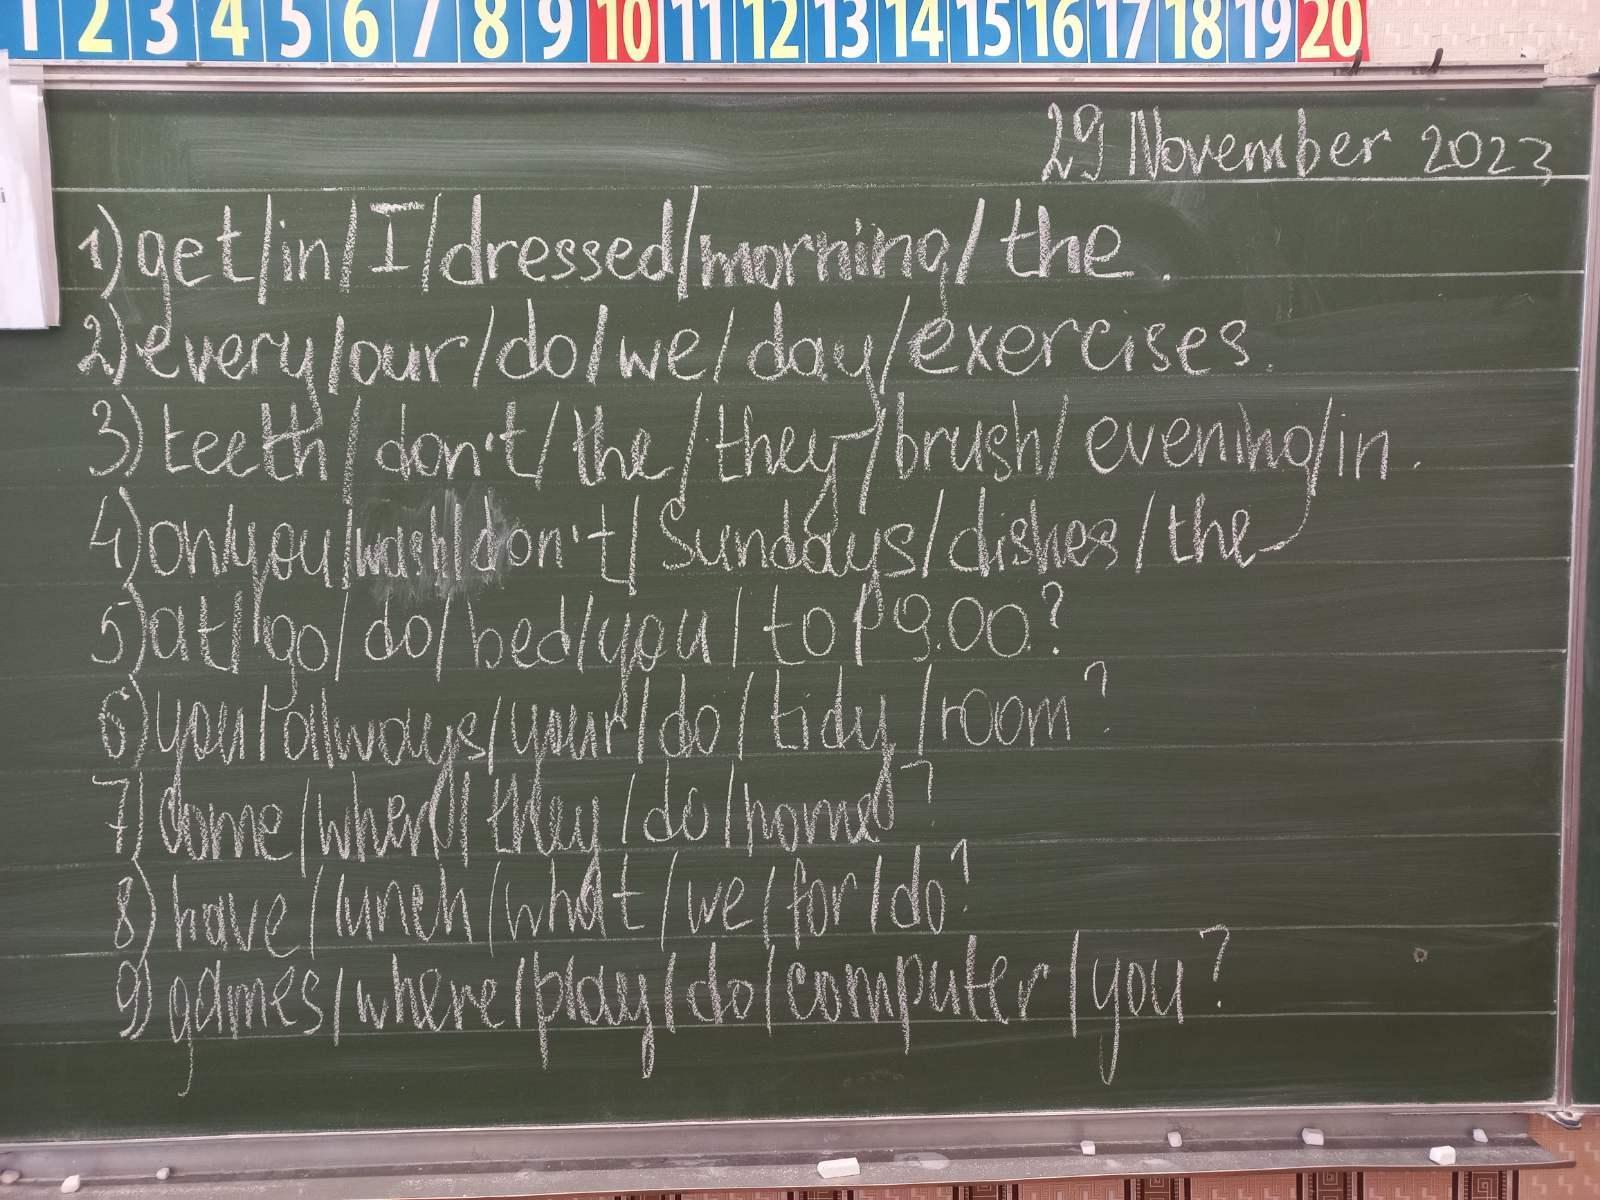 1 2 3 4 5 6 7 8 9 10 11 12 13 14 15 16 17 18 19 20
29 November 2023
1) get/in/I/dressed/morning/the.
2) every/our/do/we/day/exercises.
3) teeth/don't/the/they/brush/evening/in.
4) on/you/wash/don't/Sundays/dishes/the
5) at/go/do/bed/you/to/9.00?
6) you/always/your/do/tidy/room?
7) come/when/they/do/home?
8) have/lunch/what/we/for/do?
9) games/where/play/do/computer/you?